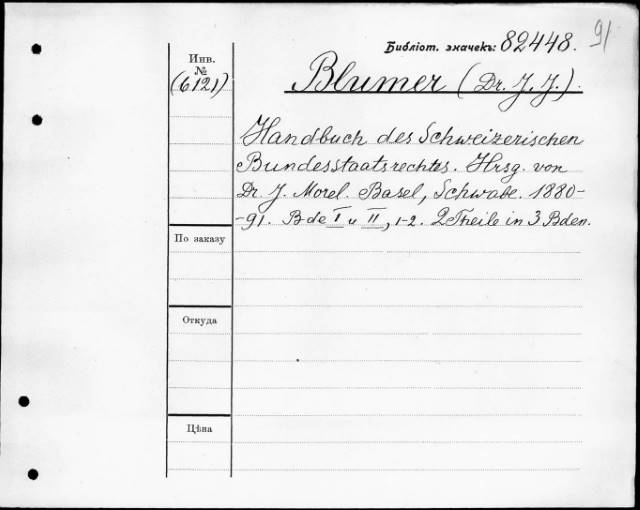 Библіот. значекъ: 82448. 91
Инв.
№
(6121)
Blumer (Dr. J. J.).
Handbuch des Schweizerischen
Bundesstaatsrechtes. Hrsg. von
Dr. J. Morel. Basel, Schwabe. 1880-
-91. Bde I u II, 1-2. 2 Theile in 3 Bden.
По заказу
Откуда
Цѣна